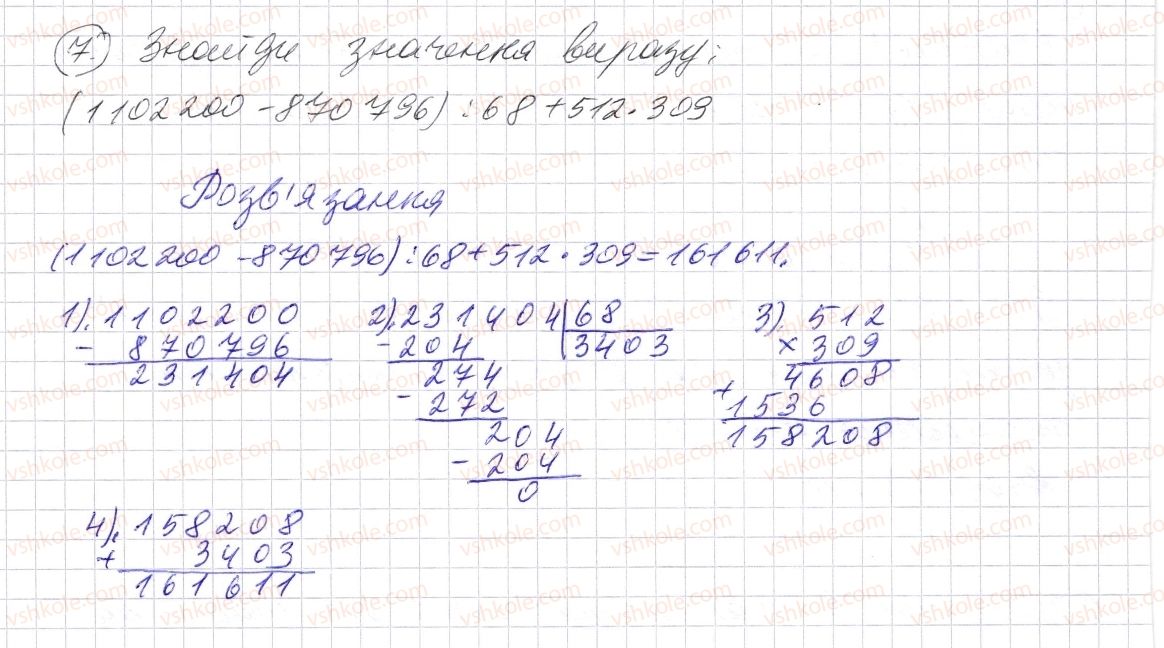 7. Знайди значення виразу:
(1102200-870796):68+512·309
Розв'язання
(1102200-870796):68+512·309=161611.
1). 1102200
- 870796
231404
2). 231404 | 68
- 204 | 3403
274
- 272
204
- 204
0
3). 512
× 309
4608
+
1536
158208
4). 158208
+ 3403
161611